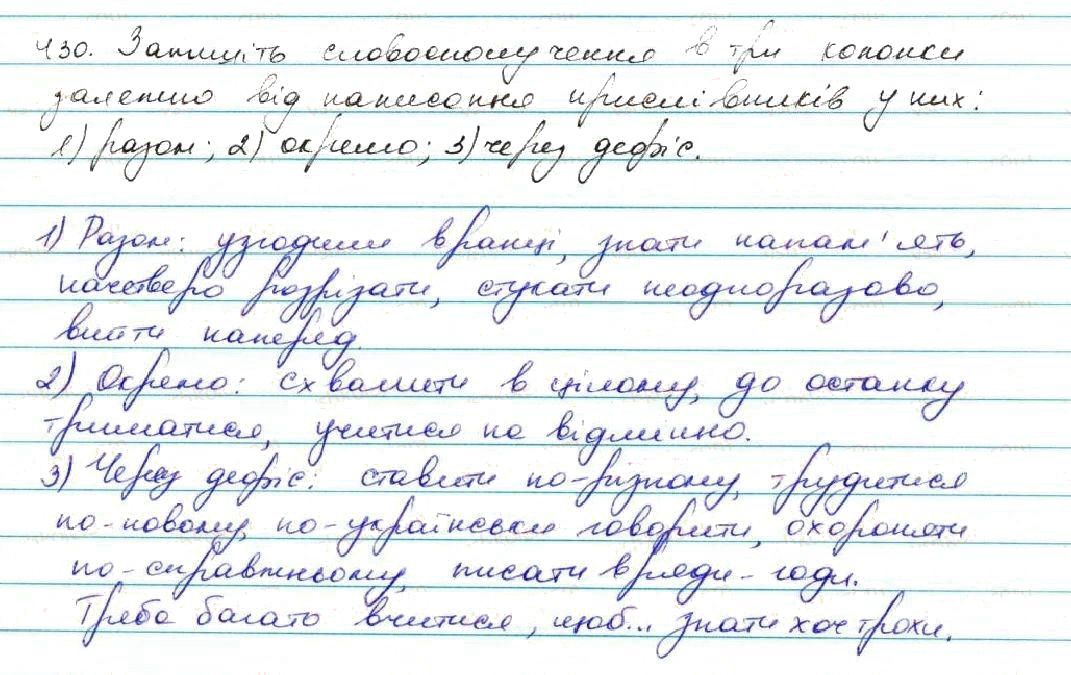 430. Запишіть словосполучення в три колонки
залежно від написання прислівників у них:
1) разом; 2) окремо; 3) через дефіс.
1) Разом: узгодили вранці, знати напам'ять,
начетверо розрізати, стукати неодноразово,
вийти наперед.
2) Окремо: схвалити в цілому, до останку
триматися, учитися на відмінно.
3) Через дефіс: ставити по-різному, трудитися
по-новому, по-українськи говорити, охороняти
по-справжньому, писати вряди-годи.
Треба багато вчитися, щоб... знати хоч трохи.